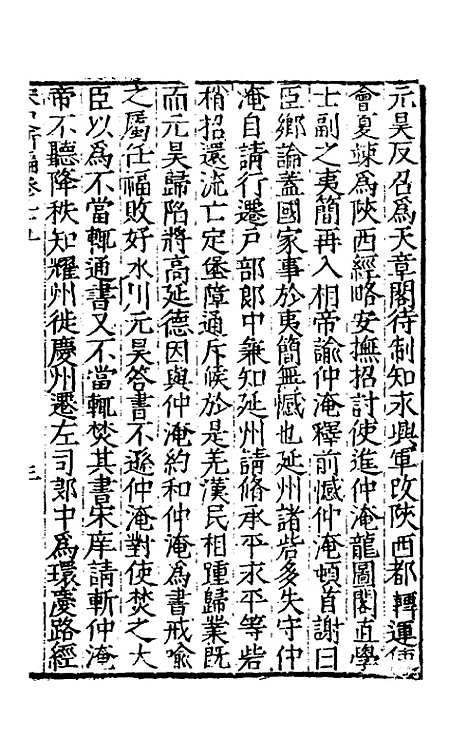 元昊反召爲天章閣待制知永興軍改陜西都轉運使
會夏竦爲陜西經略安撫招討使進仲淹龍圖閣直學
士副之夷簡再入相帝諭仲淹釋前憾仲淹頓首謝曰
臣鄉論蓋國家事於夷簡無憾也延州諸砦多失守仲
淹自請行遷戸部郎中兼知延州請脩承平永平等砦
稍招還流亡定堡障通斥候於是羌漢民相踵歸業既
而元昊歸陷將高延德因與仲淹約和仲淹爲書戒喻
之屬任福敗好水川元昊答書不遜仲淹對使焚之大
臣以爲不當輒通書又不當輒焚其書宋庠請斬仲淹
帝不聽降秩知耀州徙慶州遷左司郎中爲環慶路經
三